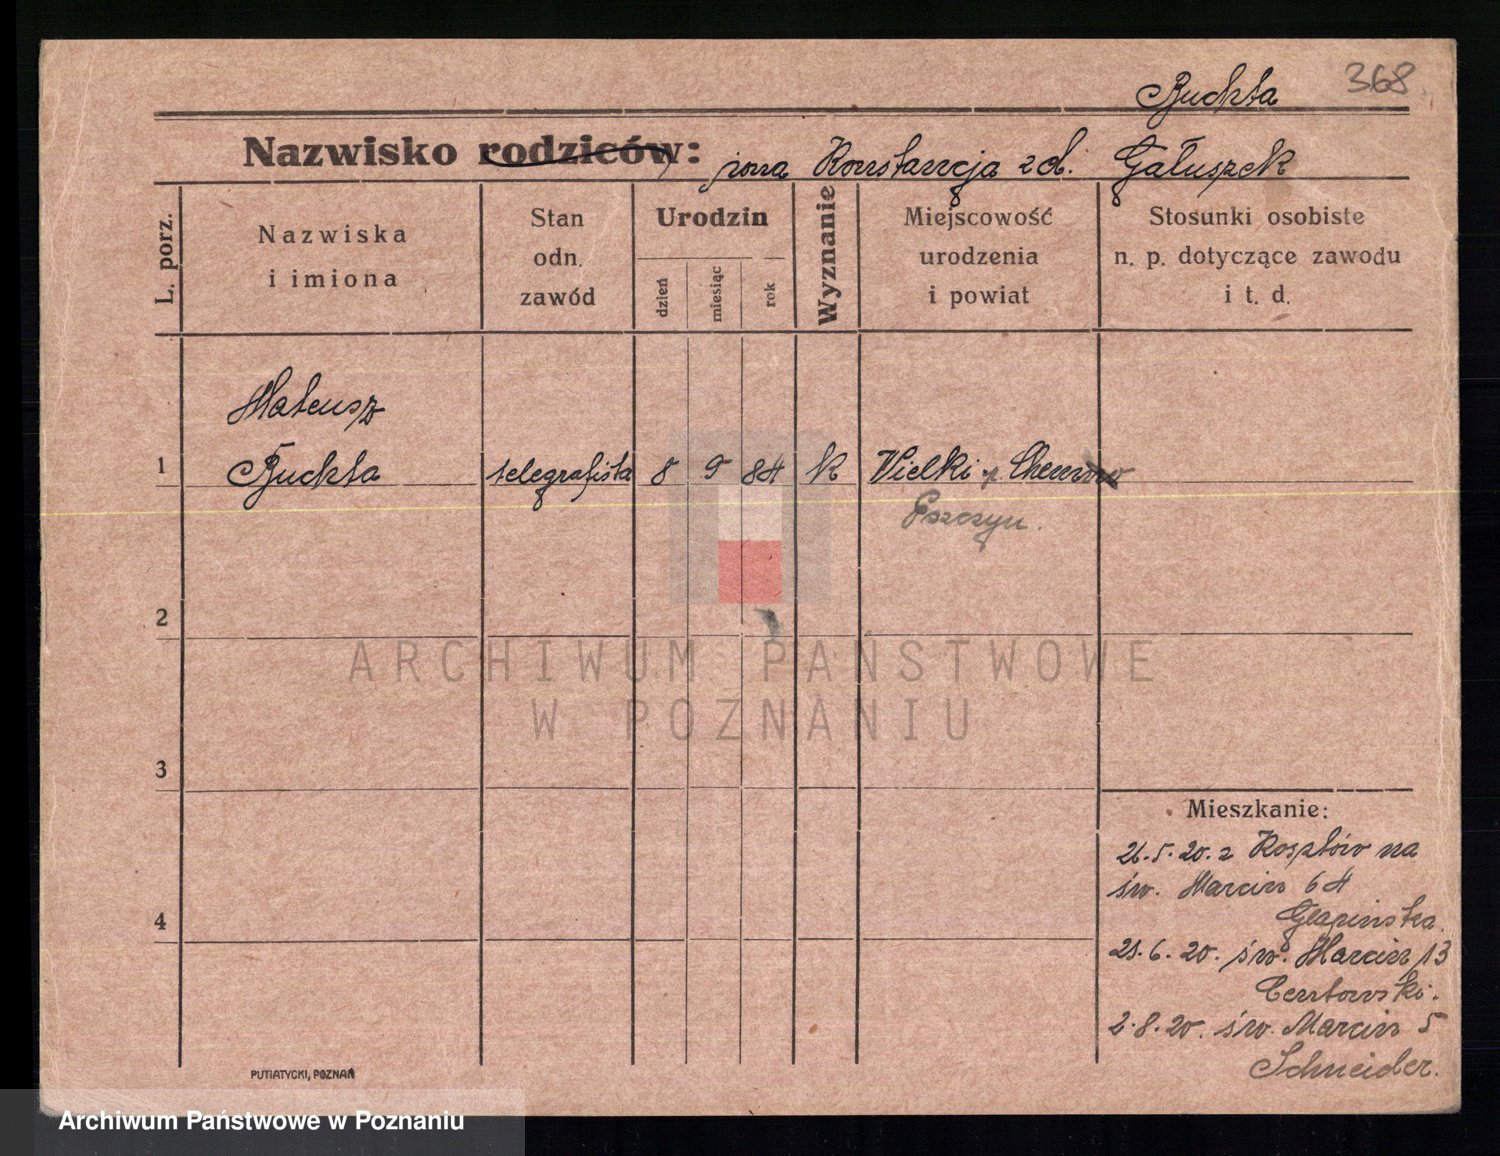 368
Buchta
Nazwisko rodziców: żona Konstancja z d. Gałuszek
L. porz.
Nazwiska
i imiona
Stan
odn.
zawód
Urodzin
dzień
miesiąc
rok
Wyznanie
Miejscowość
urodzenia
i powiat
Stosunki osobiste
n. p. dotyczące zawodu
i t. d.
Mateusz
1 Buchta telegrafista 8 9 84 k Wielki p.
Pszczyn.
2
ARCHIWUM PAŃSTWOWE
W POZNANIU
3
Mieszkanie:
21.5.20. z na
św. Marcin 64
4
Glapińska.
21.6.20. św. Marcin 13
2.8.20. św. Marcin 5
Schneider.
PUTIATYCKI, POZNAŃ
Archiwum Państwowe w Poznaniu